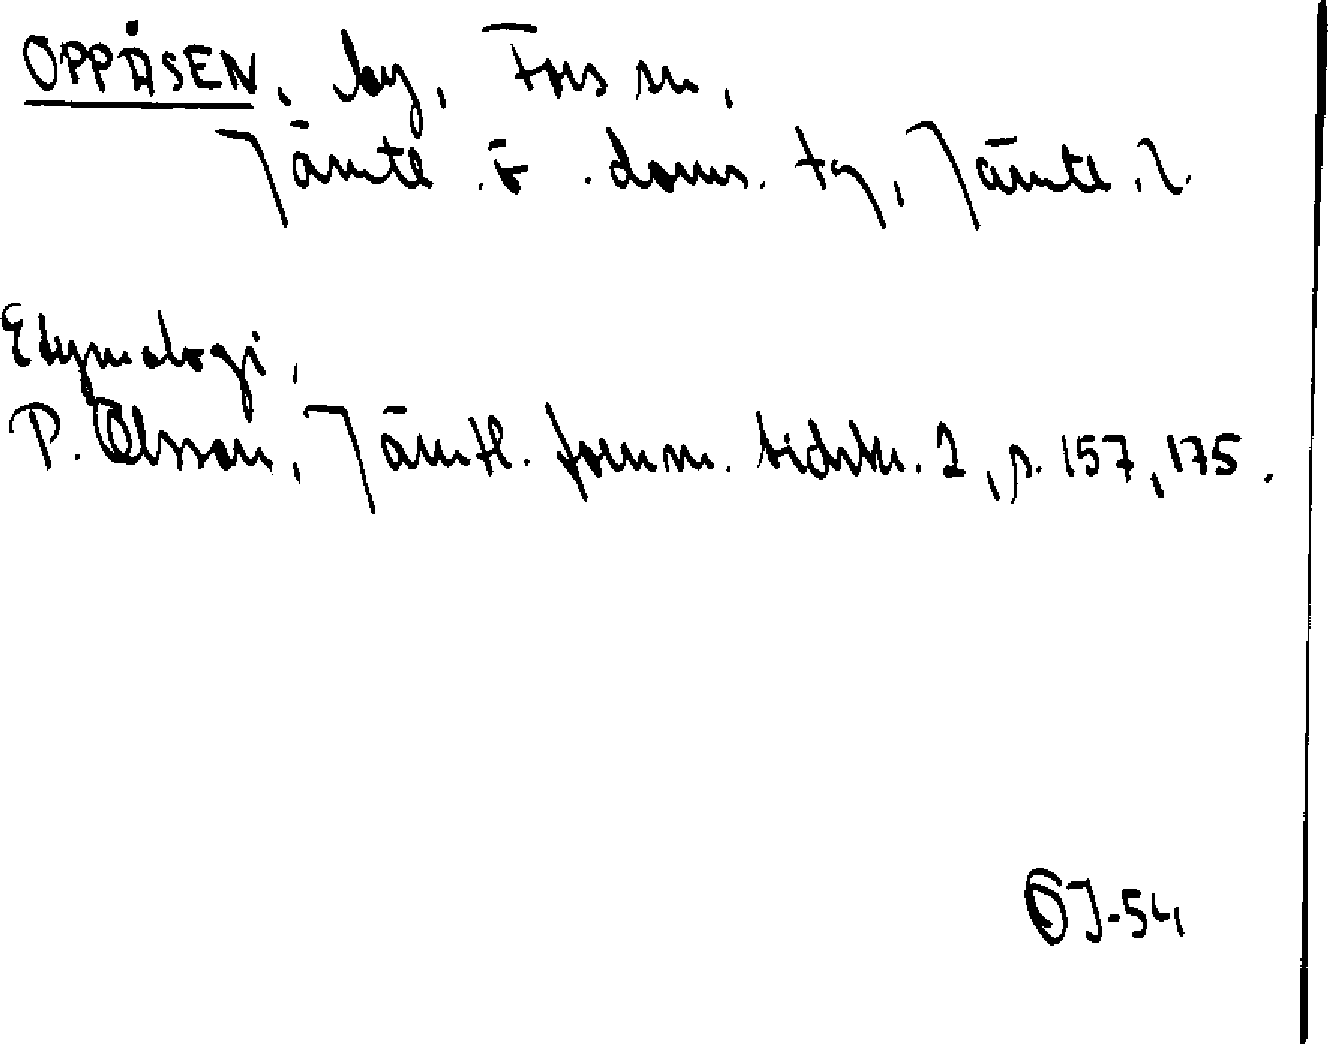 OPPÅSEN, by, Fors sn,
Jämtl. ö. doms. tg, Jämtl. l.
Etymologi,
P. Olsson, Jämtl. fornm. tidskr. 2, s. 157, 175.
ÖJ-54